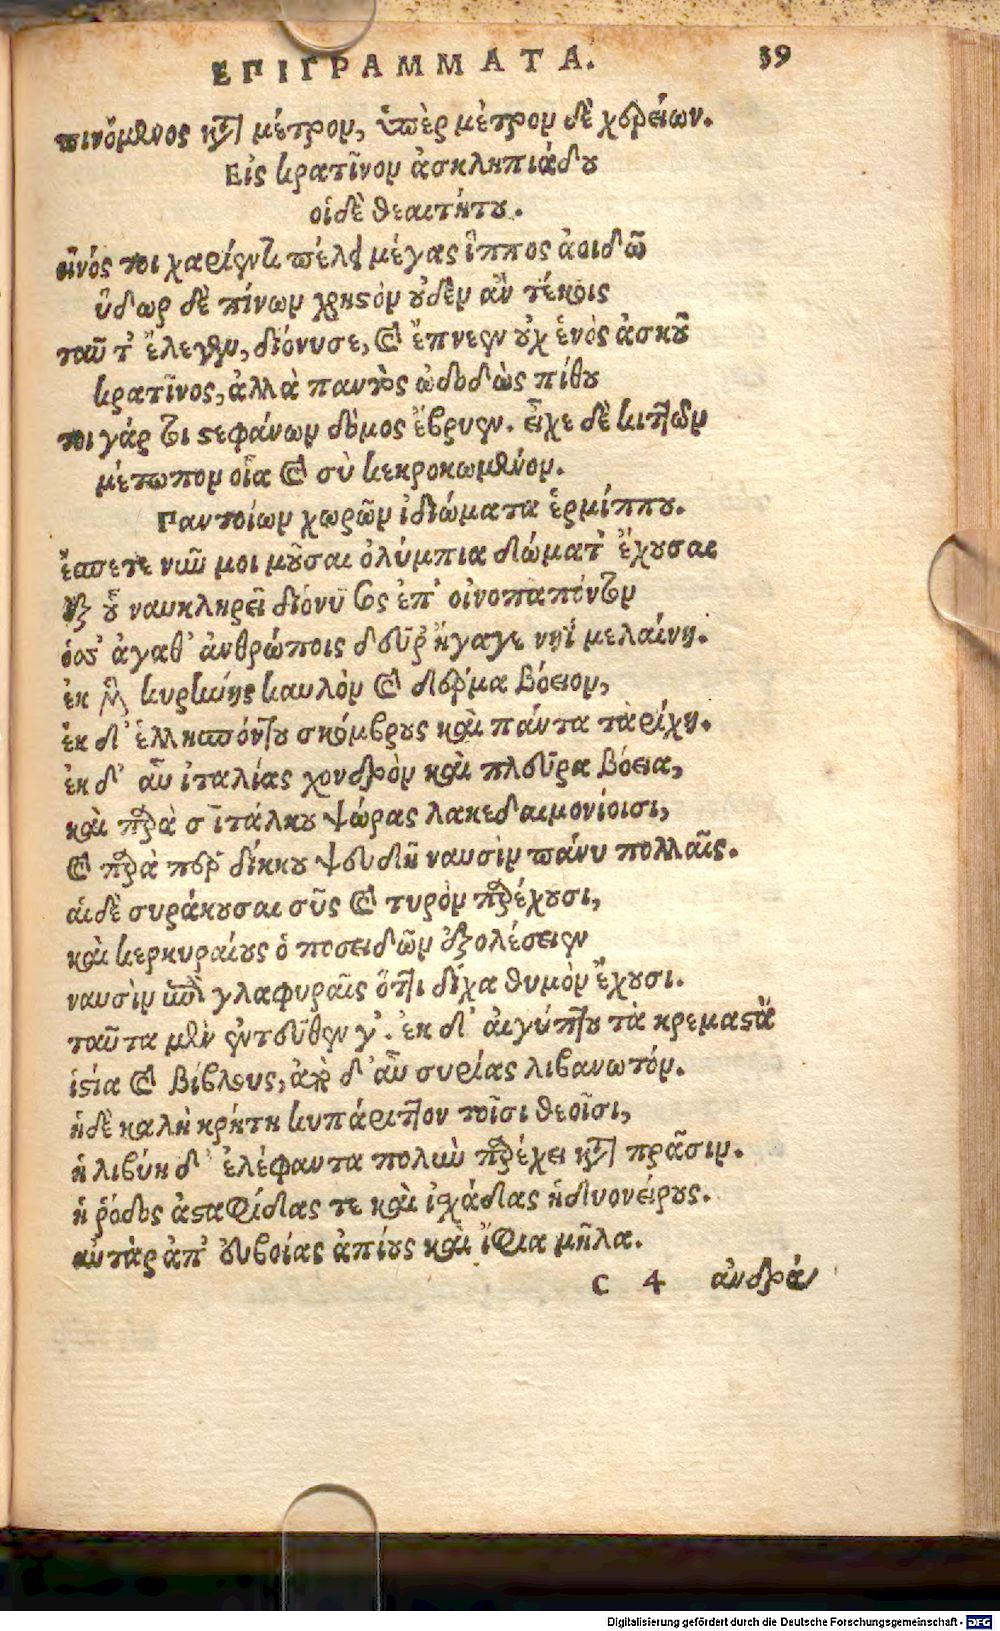 ΕΠΙΓΡΑΜΜΑΤΑ. 39
πινόμενος κατὰ μέτρον, ὑπὲρ μέτρον δὲ χερείων.
Εἰς κρατῖνον ἀσκληπιάδου
οἱ δὲ θεαιτήτου.
οἶνός τοι χαρίεντι πέλει μέγας ἵππος ἀοιδῶ
ὕδωρ δὲ πίνων χρηστὸν οὐδὲν ἂν τέκοις
ταῦτ' ἔλεγεν, διόνυσε, καὶ ἔπνεεν οὐχ ἑνὸς ἀσκοῦ
κρατῖνος, ἀλλὰ παντὸς ὠδωδὼς πίθου
τοι γάρ τοι στεφάνων δόμος ἔβρυεν. εἶχε δὲ κιττῶ
μέτωπον οἷα καὶ σὺ κεκροκωμένον.
Παντοίων χωρῶν ἰδιώματα ἑρμίππου.
ἔσπετε νῦν μοι μοῦσαι ὀλύμπια δώματ' ἔχουσαι
ἐξ οὗ ναυκληρεῖ διόνυσος ἐπ' οἰνοπα πόντον
ὅσ' ἀγαθ' ἀνθρώποις δεῦρ' ἤγαγε νηῒ μελαίνῃ.
ἐκ μὲν κυρήνης καυλὸν καὶ δέρμα βόειον,
ἐκ δ' ἑλλησπόντου σκόμβρους καὶ πάντα ταρίχη.
ἐκ δ' αὖ ἰταλίας χονδρὸν καὶ πλεῦρα βόεια,
καὶ παρὰ σιτάλκου ψώρας λακεδαιμονίοισι,
καὶ παρὰ περδίκκου ψευδῆ ναυσὶν πάνυ πολλαῖς.
αἱ δὲ συράκουσαι σῦς καὶ τυρὸν παρέχουσι,
καὶ κερκυραίους ὁ ποσειδῶν ἐξολέσειεν
ναυσὶν ἐπὶ γλαφυραῖς ὅτι δίχα θυμὸν ἔχουσι.
ταῦτα μὲν ἐντεῦθεν γ'. ἐκ δ' αἰγύπτου τὰ κρεμαστὰ
ἱστία καὶ βίβλους, ἀπὸ δ' αὖ συρίας λιβανωτόν.
ἡ δὲ καλὴ κρήτη κυπάριττον τοῖσι θεοῖσι,
ἡ λιβύη δ' ἐλέφαντα πολὺν παρέχει κατὰ πρᾶσιν.
ἡ ῥόδος ἀσταφίδας τε καὶ ἰσχάδας ἡδυονείρους.
αὐτὰρ ἀπ' εὐβοίας ἀπίους καὶ ἴφια μῆλα.
c 4 ἀνδρά
Digitalisierung gefördert durch die Deutsche Forschungsgemeinschaft - DFG